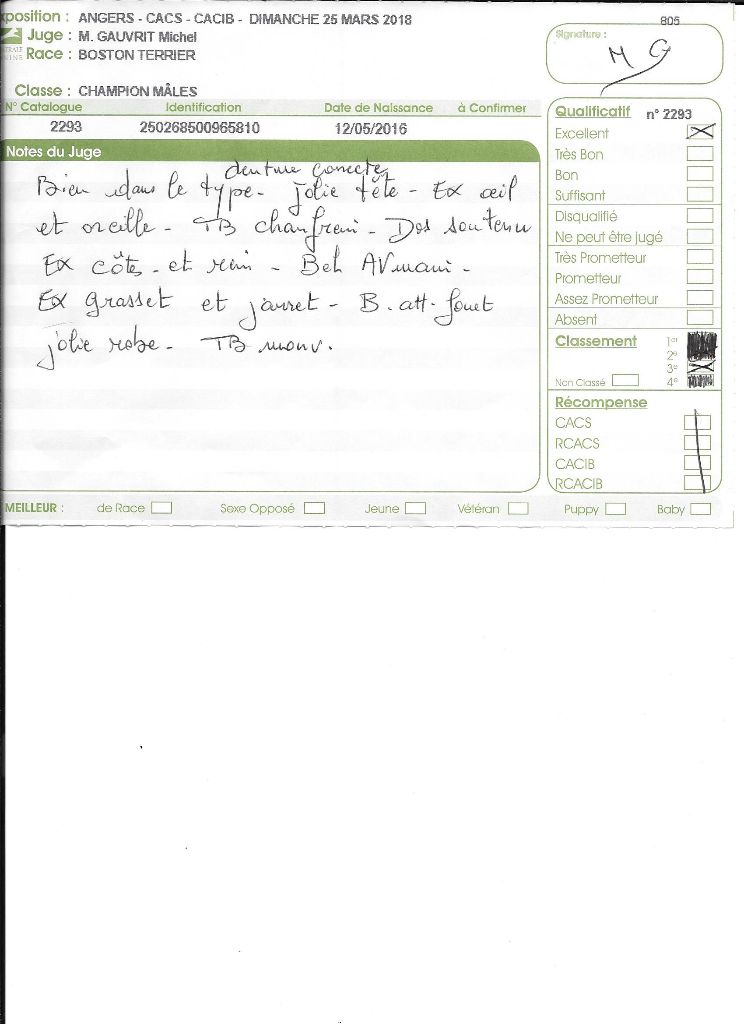 xposition : ANGERS - CACS - CACIB - DIMANCHE 25 MARS 2018
805
Juge : M. GAUVRIT Michel
Signature :
M G
Race : BOSTON TERRIER
Classe : CHAMPION MÂLES
N° Catalogue Identification Date de Naissance à Confirmer
2293 250268500965810 12/05/2016
Notes du Juge
denture correcte
Bien dans le type - jolie tête - Ex œil
et oreille - TB chanfrein - Dos soutenu
Ex côtes - et rein - Bel AVmain -
Ex grasset et jarret - B. att - fouet
jolie robe - TB mouv.
Qualificatif n° 2293
Excellent
Très Bon
Bon
Suffisant
Disqualifié
Ne peut être jugé
Très Prometteur
Prometteur
Assez Prometteur
Absent
Classement 1er
2e
3e
Non Classé 4e
Récompense
CACS
RCACS
CACIB
RCACIB
MEILLEUR : de Race Sexe Opposé Jeune Vétéran Puppy Baby